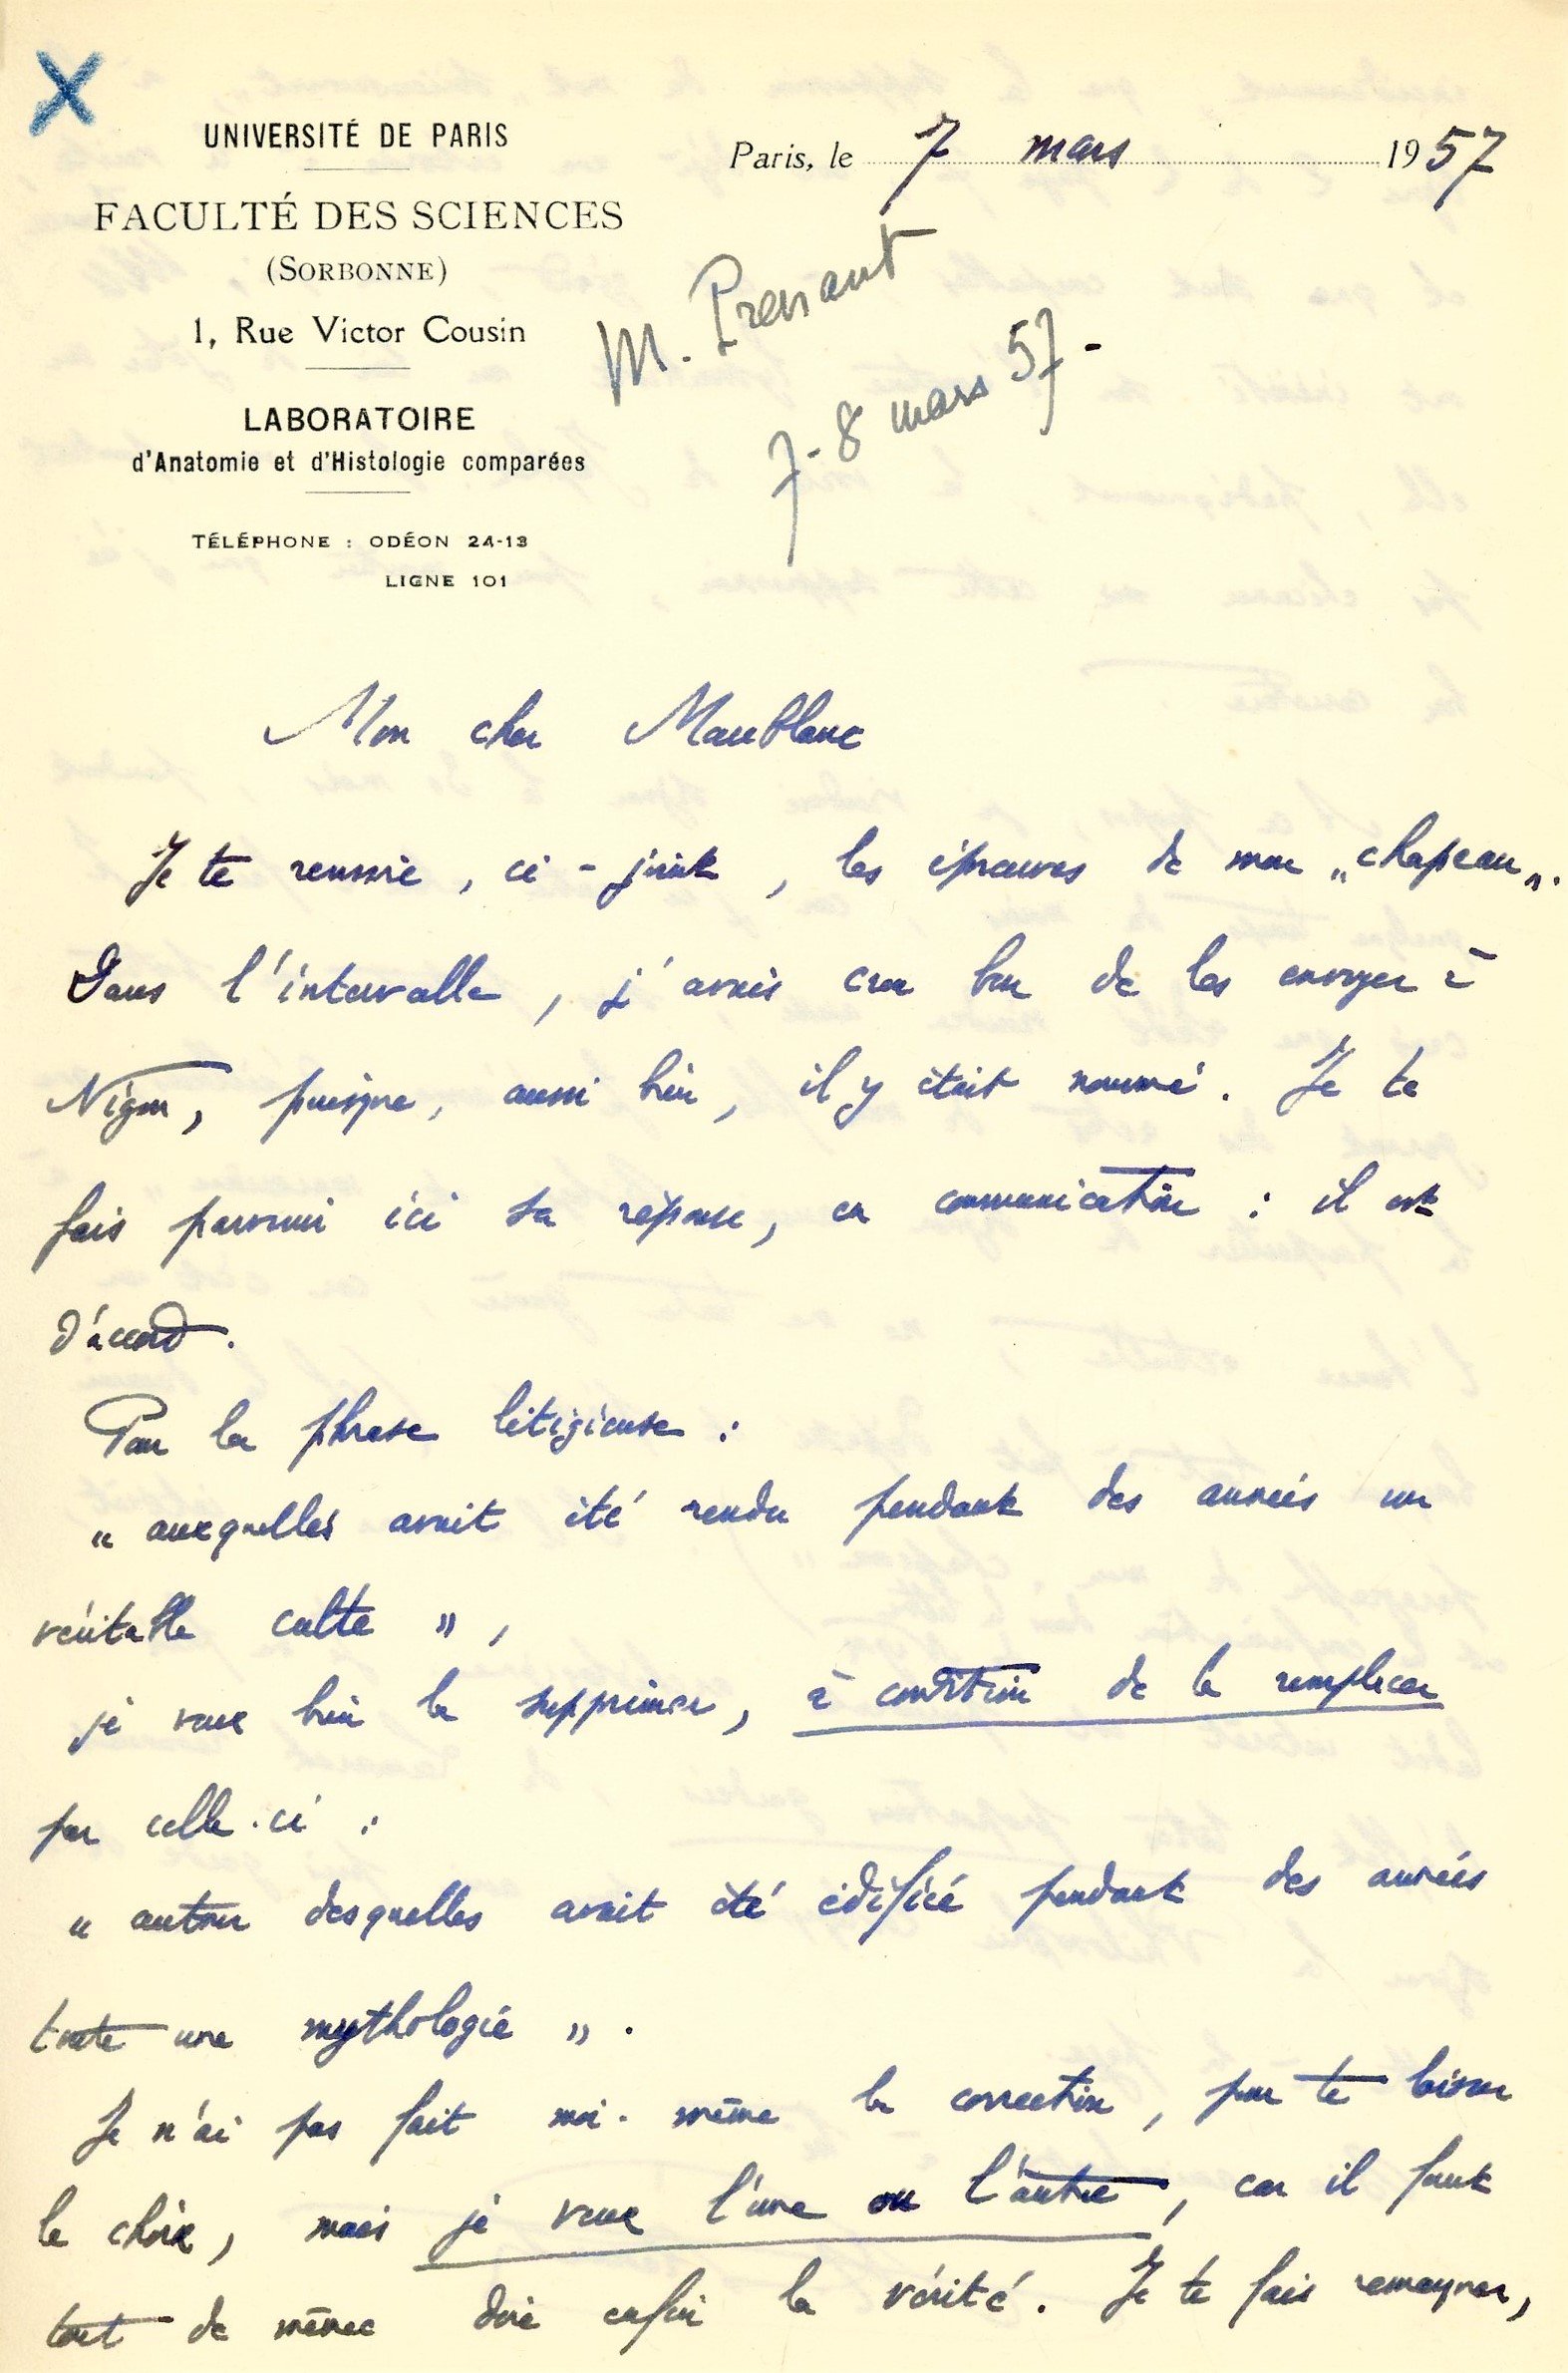 X
UNIVERSITÉ DE PARIS
FACULTÉ DES SCIENCES
(SORBONNE)
1, Rue Victor Cousin
LABORATOIRE
d'Anatomie et d'Histologie comparées
TÉLÉPHONE : ODÉON 24-13
LIGNE 101
Paris, le 7 mars 1957
M. Prenant
7-8 mars 57-
Mon cher Maublanc
Je te renvoie, ci-joint, les épreuves de mon „chapeau„.
Dans l'intervalle, j'avais cru bon de les envoyer à
Nigon, puisque, aussi bien, il y était nommé. Je te
fais parvenir ici sa réponse, en communication : il est
d'accord.
Pour la phrase litigieuse :
„ auxquelles avait été rendu pendant des années un
véritable culte „ ,
je veux bien la supprimer, à condition de la remplacer
par celle-ci :
„ autour desquelles avait été édifiée pendant des années
toute une mythologie „ .
Je n'ai pas fait moi-même la correction, pour te laisser
le choix, mais je veux l'une ou l'autre, car il faut
tout de même dire enfin la vérité. Je te fais remarquer,